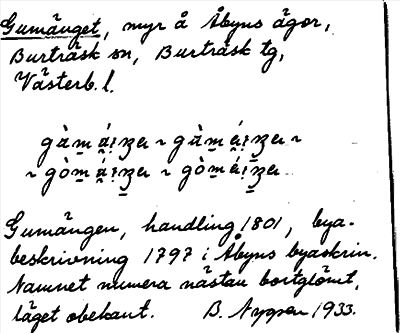 Gumänget, myr å Åbyns ägor,
Burträsk sn, Burträsk tg,
Västerb. l.
Gumängen, handling 1801, bya-
beskrivning 1797 i Åbyns byaskrin.
Namnet numera nästan bortglömt,
läget obekant. B. Nyppen 1933.